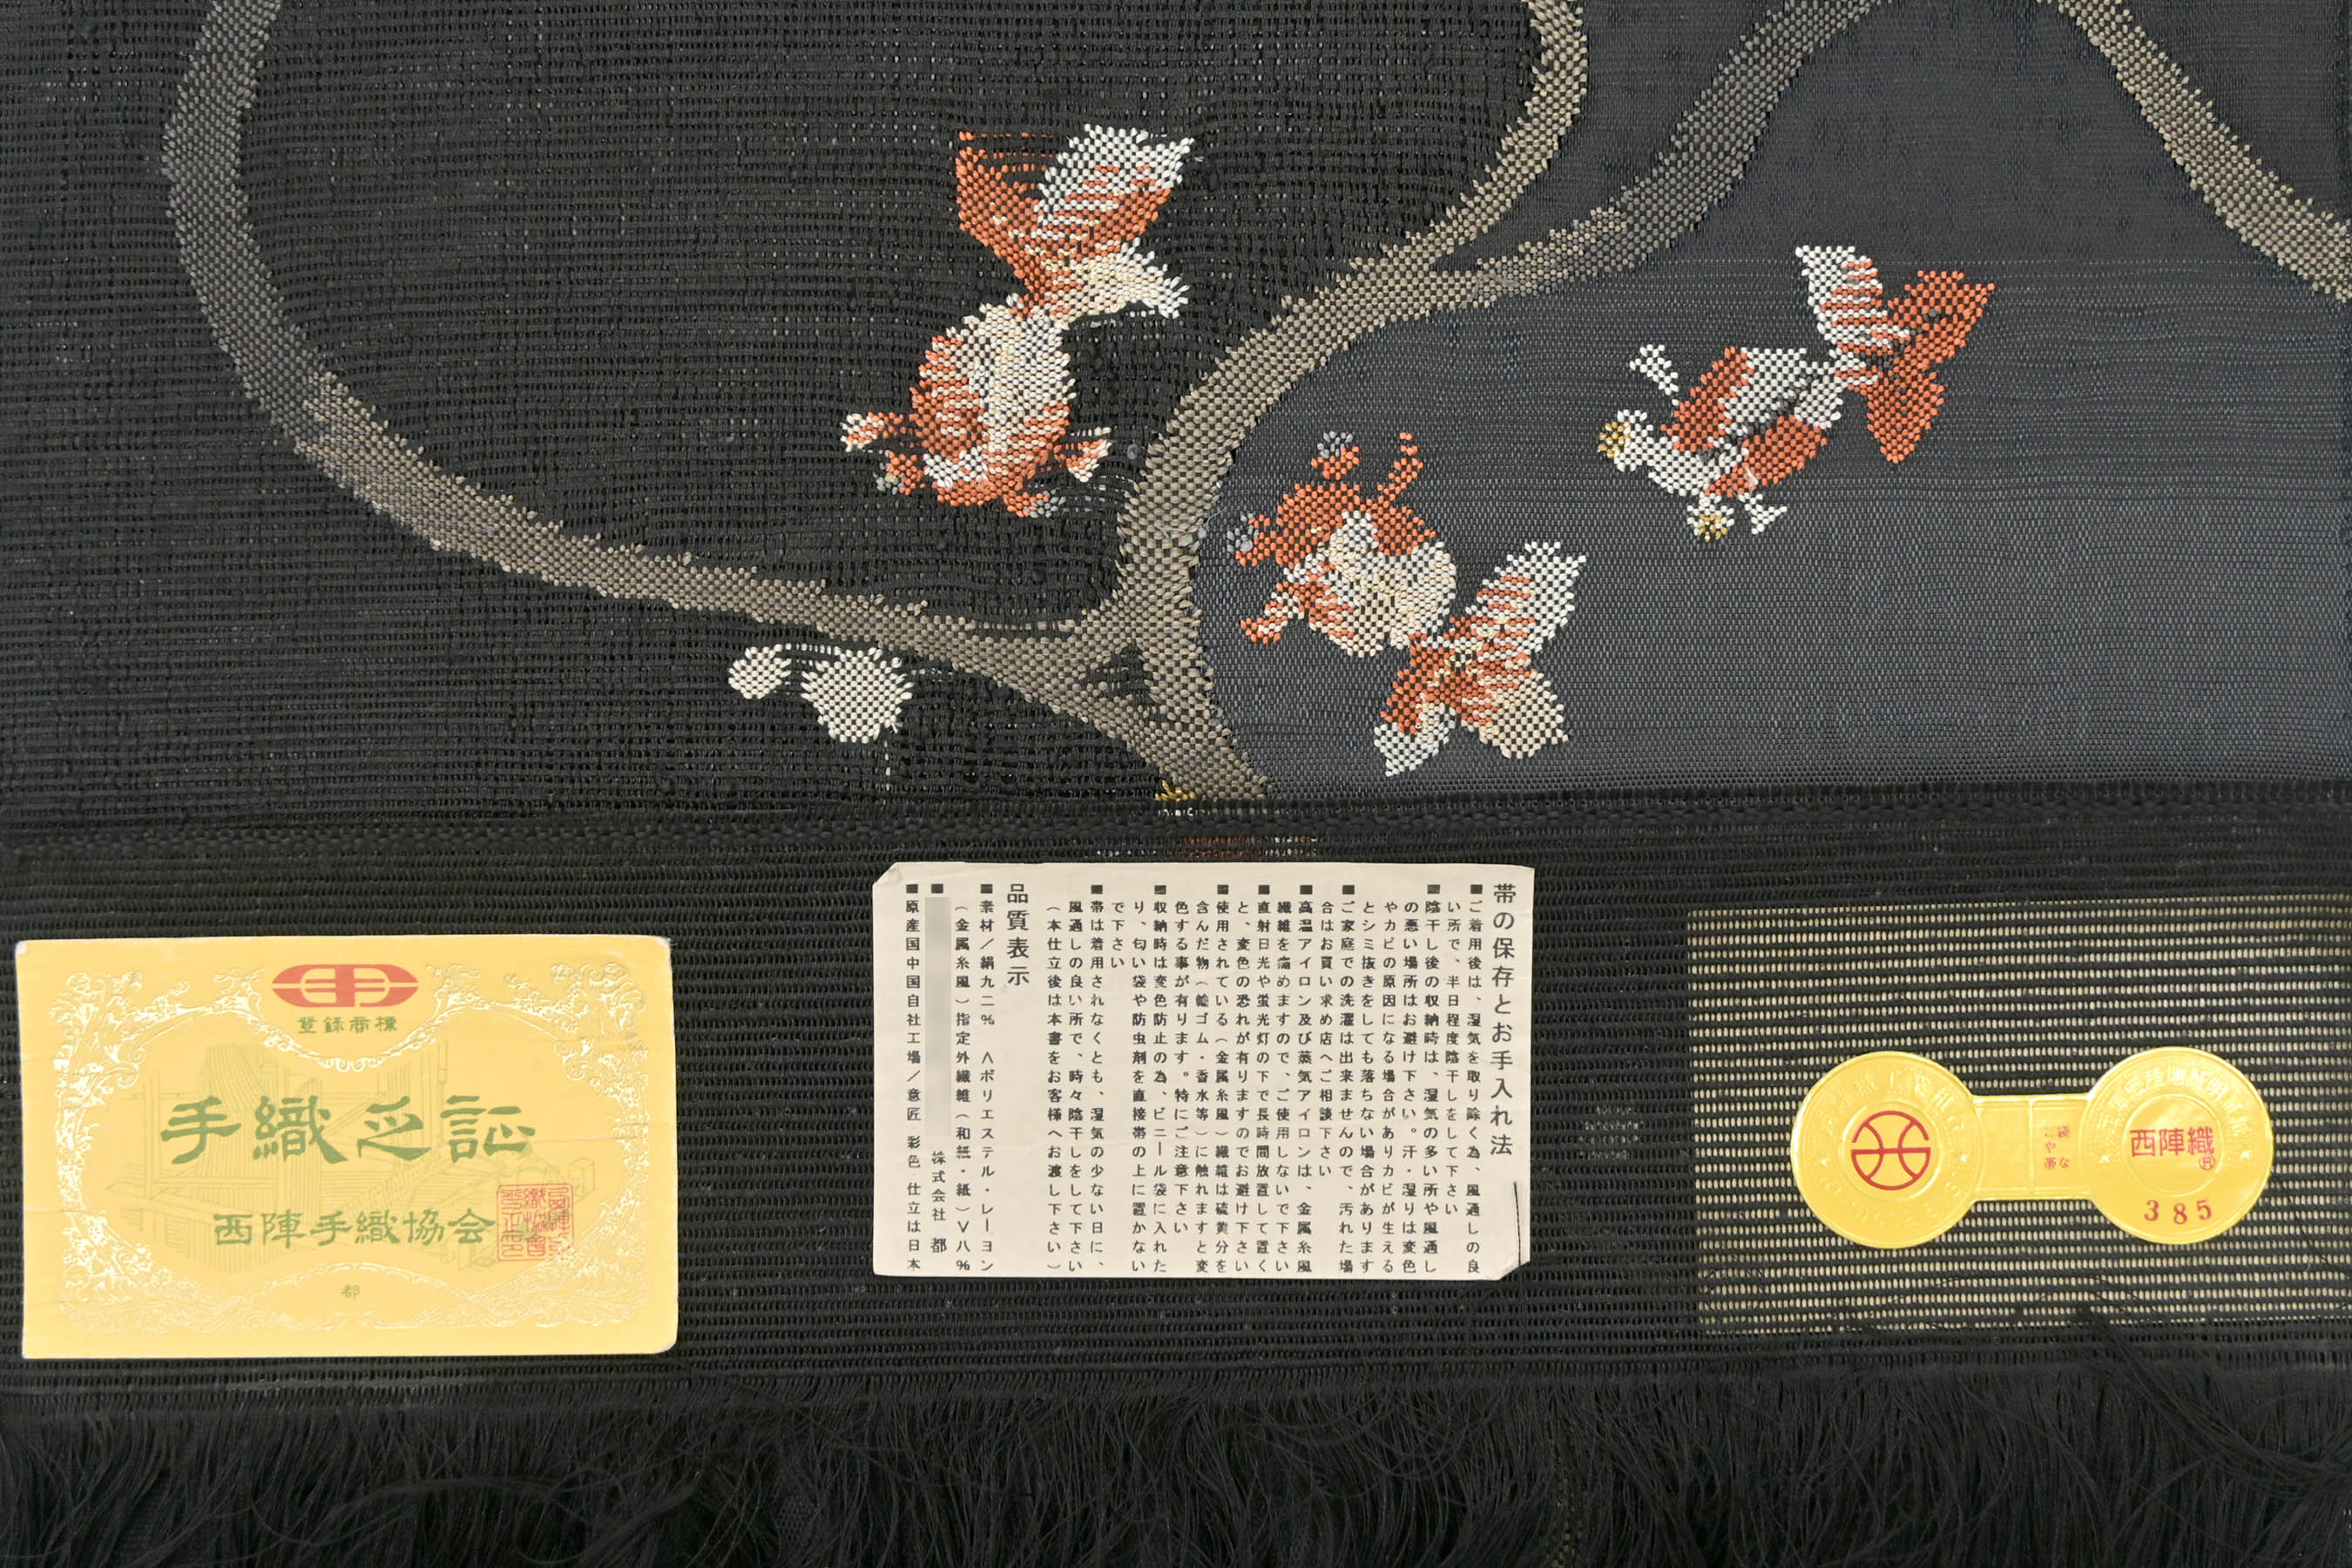 登録商標
手織之証
西陣手織協会
都
帯の保存とお手入れ法
■ご着用後は、湿気を取り除く為、風通しの良
い所で、半日程度陰干しをして下さい
■陰干し後の収納時は、湿気の多い所や風通し
の悪い場所はお避け下さい。汗・湿りは変色
やカビの原因になる場合がありカビが生える
とシミ抜きをしても落ちない場合があります
■ご家庭での洗濯は出来ませんので、汚れた場
合はお買い求め店へご相談下さい
■高温アイロン及び蒸気アイロンは、金属糸風
繊維を痛めますので、ご使用しないで下さい
■直射日光や蛍光灯の下で長時間放置して置く
と、変色の恐れが有りますのでお避け下さい
■使用されている(金属糸風)繊維は硫黄分を
含んだ物(輪ゴム・香水等)に触れますと変
色する事が有ります。特にご注意下さい
■収納時は変色防止の為、ビニール袋に入れた
り、匂い袋や防虫剤を直接帯の上に置かない
で下さい
■帯は着用されなくとも、湿気の少ない日に、
風通しの良い所で、時々陰干しをして下さい
(本仕立後は本書をお客様へお渡し下さい)
品質表示
■素材/絹九二% <ポリエステル・レーヨン
(金属糸風)指定外繊維(和紙・紙)>八%
■ 株式会社 都
■原産国中国自社工場/意匠 彩色 仕立は日本
西陣織
385